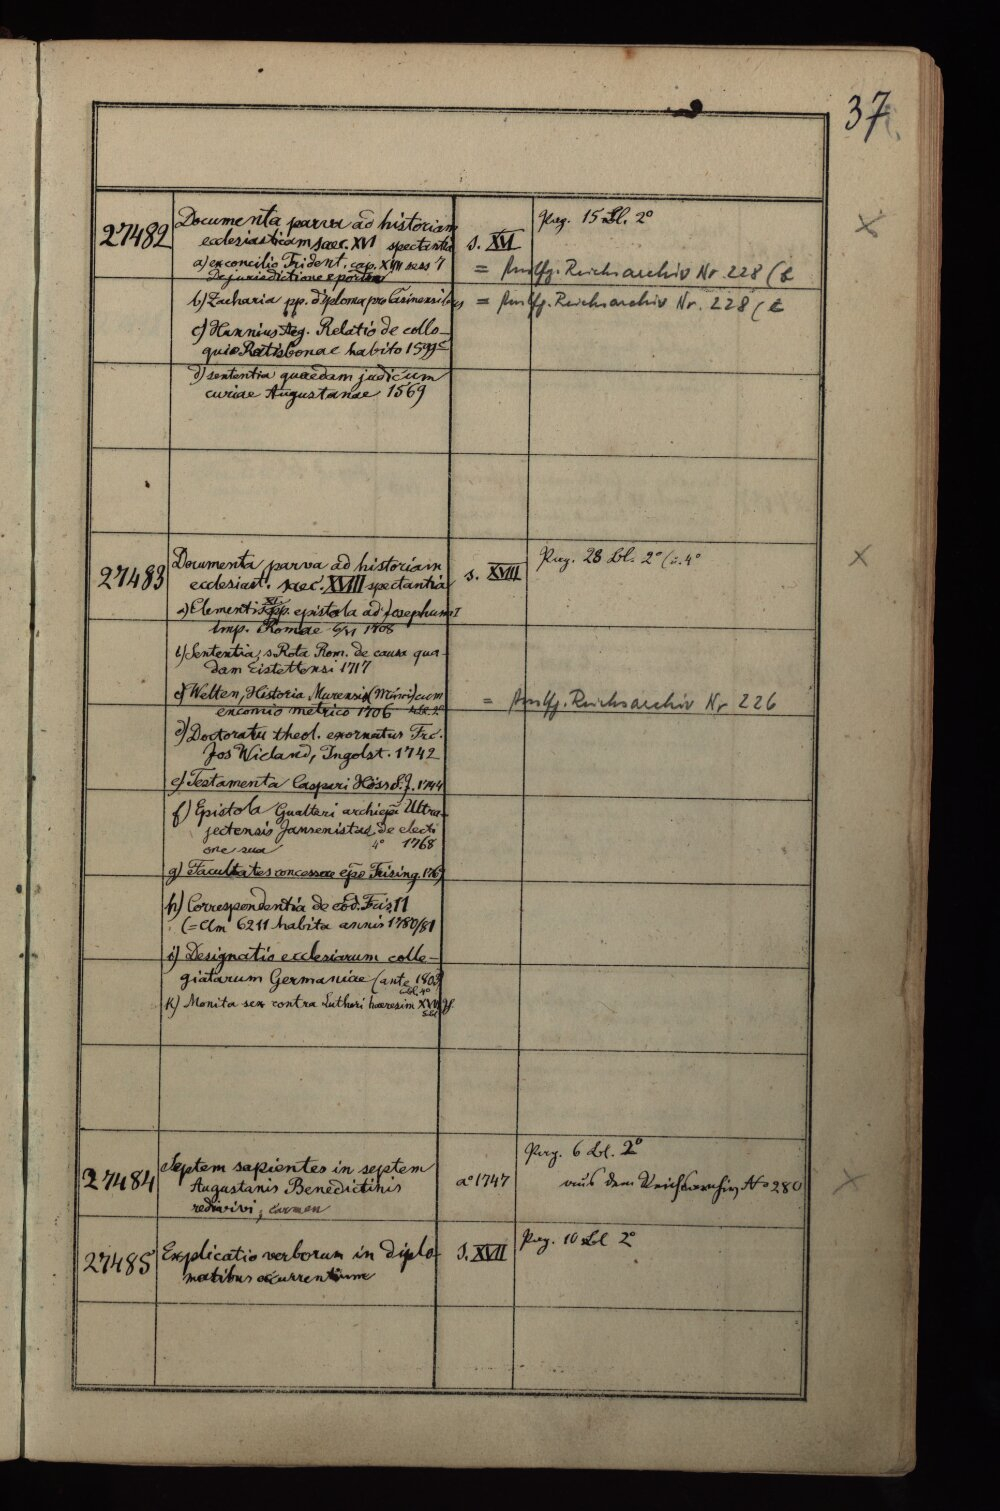 37
27482
Documenta parva ad historiam
ecclesiasticam saec. XVI spectantia
s. XVI
15 Bl. 2°
a) ex concilio Trident. cap. XVIII sess 7
De jurisdictione
= Reichsarchiv Nr. 228 (
b) Zacharia pp. diploma pro Casinensibus
= Reichsarchiv Nr. 228 (
c) Hunnius Aeg. Relatio de collo-
quio Ratisbonae habito 1599
d) sententia quaedam judicum
curiae Augustanae 1569
27483
Documenta parva ad historiam
ecclesiast. saec. XVIII spectantia
s. XVIII
28 Bl. 2° (u. 4°
a) Clementis XI pp. epistola ad Josephum I
Imp. Romae 1708
b) Sententia s. Rota Rom. de causa qua-
dam Eistettensi 1717
c) Welten, Historia Murensis (Minoi) cum
encomio metrico 1706
= Reichsarchiv Nr 226
d) Doctoratu theol. exornatus Frc.
Jos Wieland, Ingolst. 1742
e) Testamenta Caspari Höss S.J. 1744
f) Epistola Gualteri archiepi Ultra-
jectensis Jansenistae de electi
one sua 4° 1768
g) Facultates concessae epo Frising. 1769
h) Correspondentia de cod. Fris. 11
(= Clm 6211 habita annis 1780/81
i) Designatio ecclesiarum colle-
giatarum Germaniae (ante 1803
k) Monita sex contra Lutheri haeresim
27484
Septem sapientes in septem
Augustanis Benedictinis
redivivi, carmen
a° 1747
6 Bl. 2°
aus dem Reichsarchiv No 280
27485
Explicatio verborum in diplo-
matibus occurrentium
S. XVII
10 Bl 2°